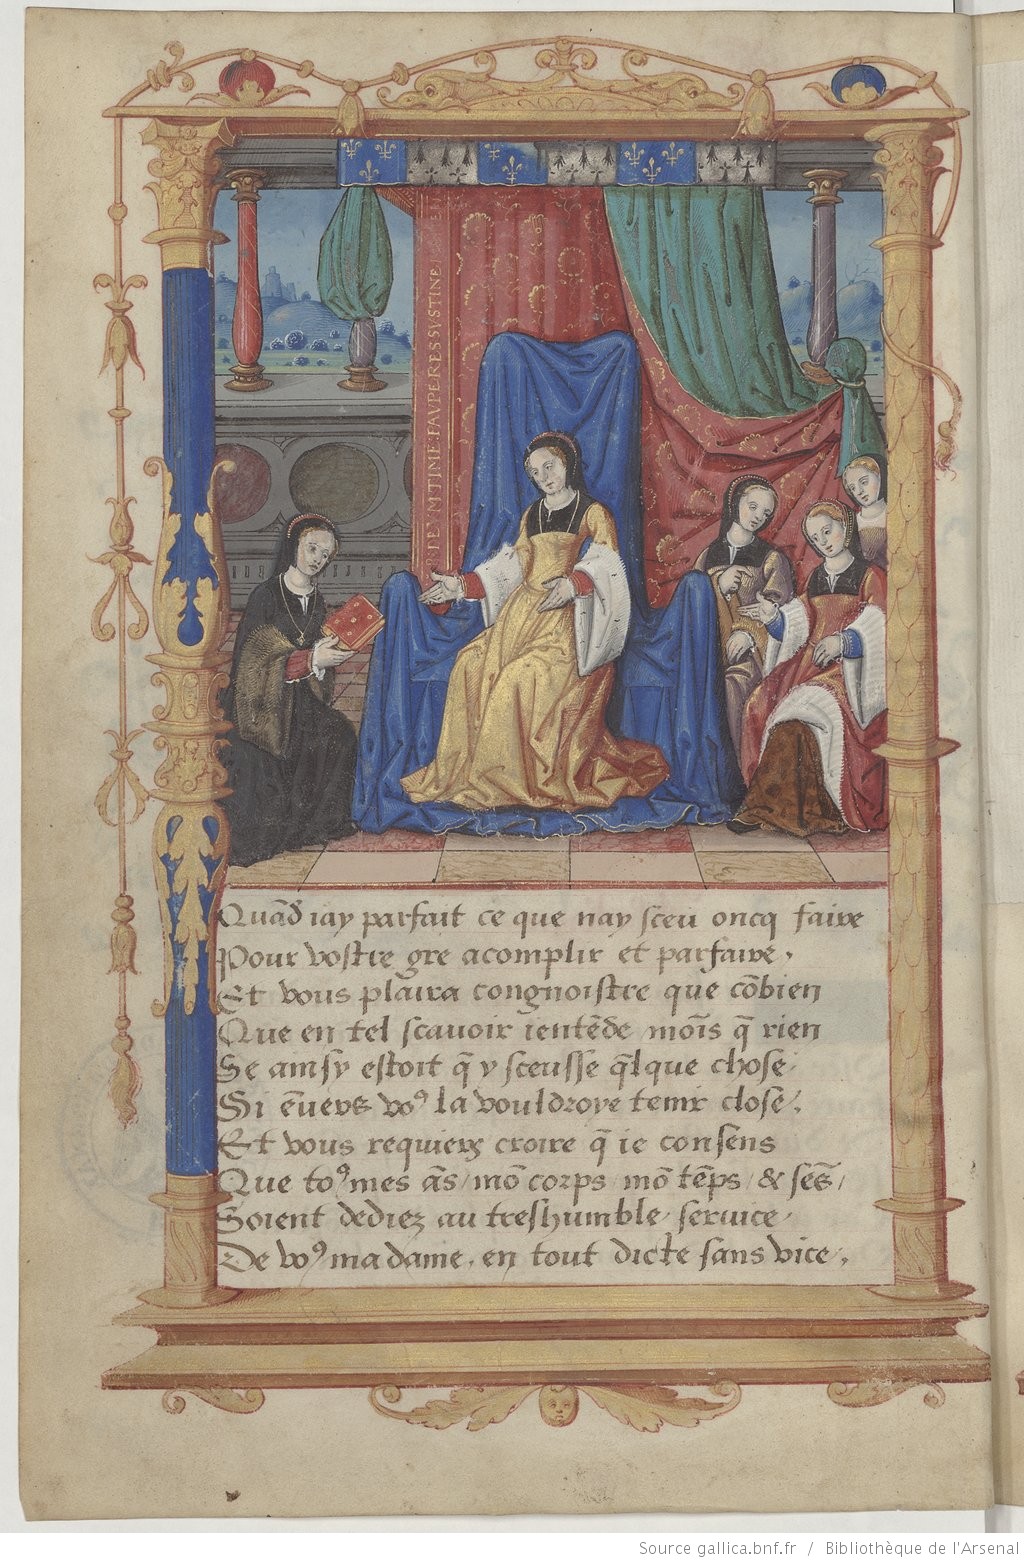 TIMEPAVPERESSVSTINE
Quād iay parfait ce que nay sceu oncq faire
Pour vostre gre acomplir et parfaire.
Et vous plaira congnoistre que cōbien
Que en tel scauoir ientēde moīs q̄ rien
Se ainsy estoit q̄ y sceusse q̄lque chose.
Si ēuers voꝰ la vouldroye tenir close.
Et vous requierz croire q̄ ie consens
Que toꝰ mes ās / mō corps / mō tēps / & sēs /
Soient dediez au treshumble / seruice.
De voꝰ ma dame . en tout dicte sans vice.
Source gallica.bnf.fr / Bibliothèque de l'Arsenal